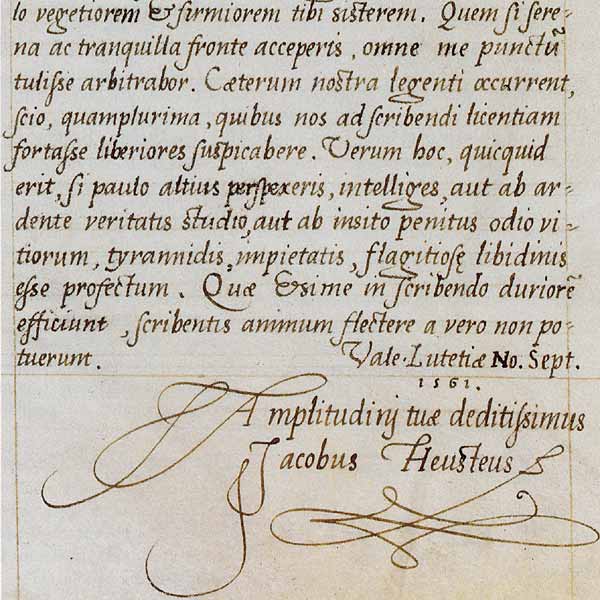 lo vegetiorem & firmiorem tibi sisterem. Quem si sere-
na ac tranquilla fronte acceperis, omne me punctū
tulisse arbitrabor. Cæterum nostra legenti occurrent,
scio, quamplurima, quibus nos ad scribendi licentiam
fortasse liberiores suspicabere. Verum hoc, quicquid
erit, si paulo altius perspexeris, intelliges, aut ab ar-
dente veritatis studio, aut ab insito penitus odio vi-
tiorum, tyrannidis, impietatis, flagitiosę libidinis
esse profectum. Quæ & si me in scribendo duriorē
efficiunt, scribentis animum flectere a vero non po-
tuerunt. Vale. Lutetiæ No. Sept.
1561.
Amplitudinj tuæ deditissimus
Jacobus Heusteus